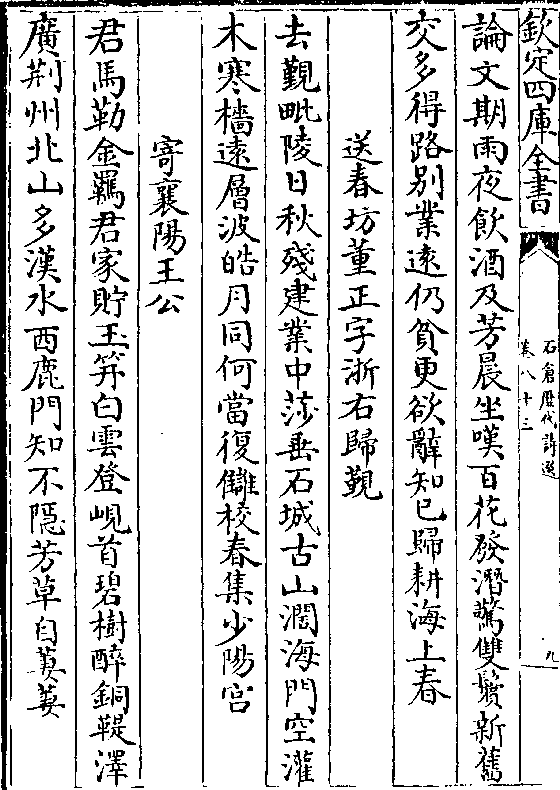 欽定四庫全書
石倉歷代詩選
卷八十三
九
論文期雨夜飲酒及芳晨坐嘆百花發潛驚雙鬢新舊
交多得路別業遠仍貧更欲辭知已歸耕海上春
送春坊董正字浙右歸覲
去覲毗陵日秋殘建業中莎垂石城古山濶海門空灌
木寒檣遠層波皓月同何當復讎校春集少陽宮
寄襄陽王公
君馬勒金羈君家貯玉笄白雲登峴首碧樹醉銅鞮澤
廣荆州北山多漢水西鹿門知不隱芳草自萋萋